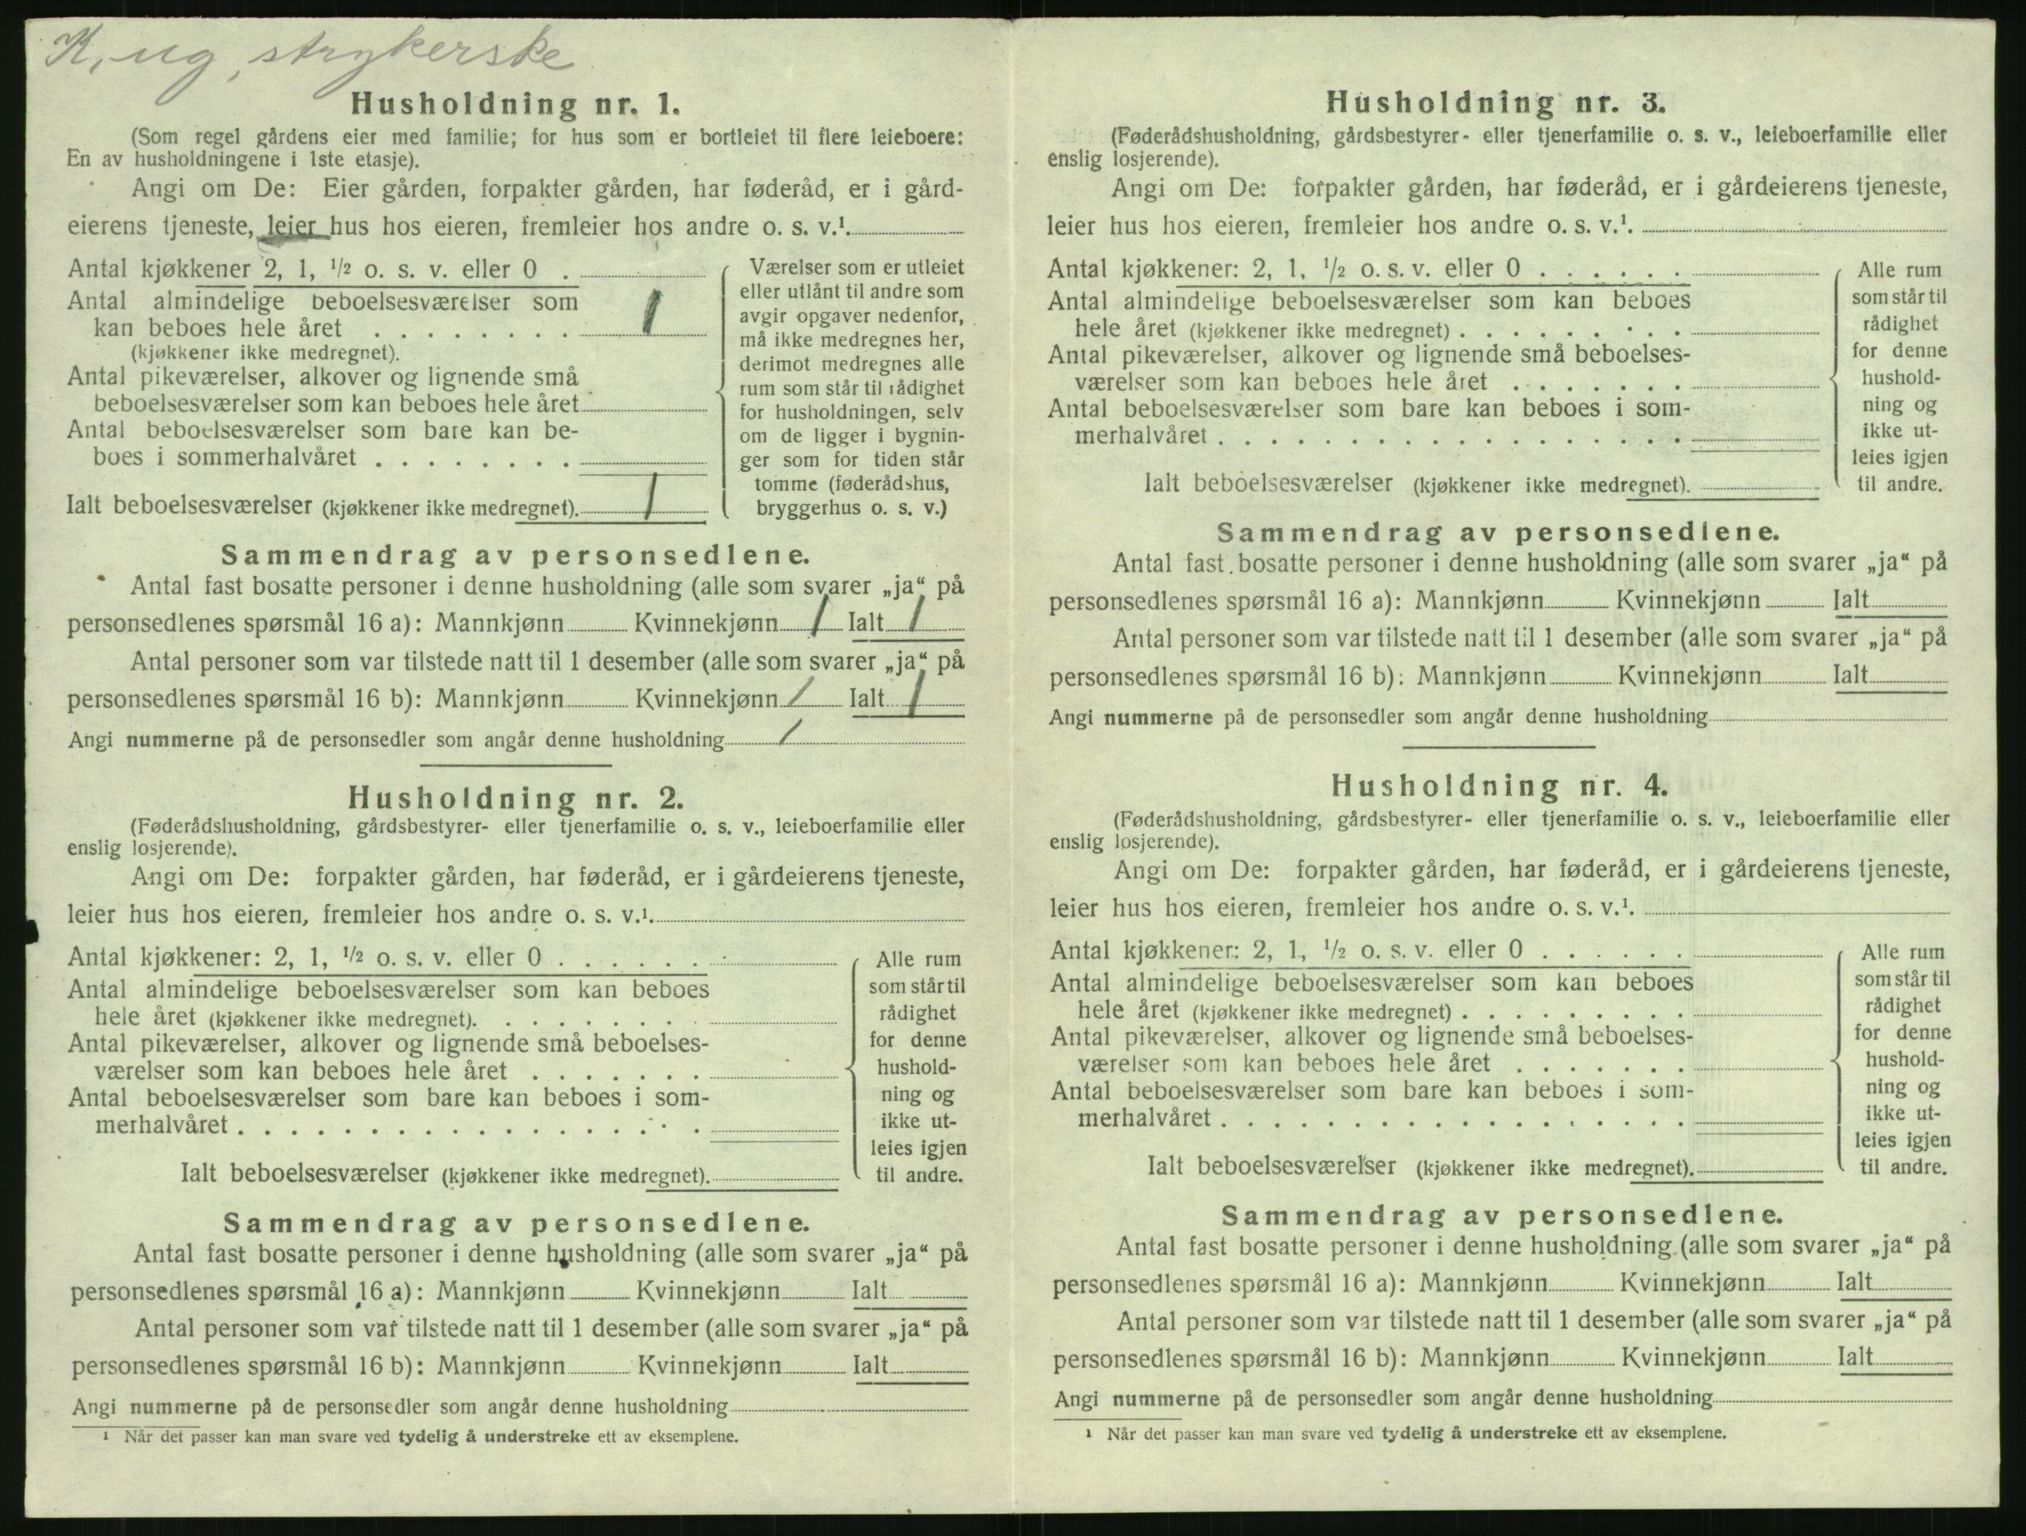 K, ug, strykerske
Husholdning nr. 1.
(Som regel gårdens eier med familie; for hus som er bortleiet til flere leieboere:
En av husholdningene i 1ste etasje).
Angi om De: Eier gården, forpakter gården, har føderåd, er i gård-
eierens tjeneste, leier hus hos eieren, fremleier hos andre o. s. v.¹.
Antal kjøkkener 2, 1, ½ o. s. v. eller 0 .
Antal almindelige beboelsesværelser som
kan beboes hele året . . . . . . . . 1
(kjøkkener ikke medregnet).
Antal pikeværelser, alkover og lignende små
beboelsesværelser som kan beboes hele året
Antal beboelsesværelser som bare kan be-
boes i sommerhalvåret . . . . . . . .
Ialt beboelsesværelser (kjøkkener ikke medregnet). 1
Værelser som er utleiet
eller utlånt til andre som
avgir opgaver nedenfor,
må ikke medregnes her,
derimot medregnes alle
rum som står til rådighet
for husholdningen, selv
om de ligger i bygnin-
ger som for tiden står
tomme (føderådshus,
bryggerhus o. s. v.)
Sammendrag av personsedlene.
Antal fast bosatte personer i denne husholdning (alle som svarer „ja“ på
personsedlenes spørsmål 16 a): Mannkjønn Kvinnekjønn 1 Ialt 1
Antal personer som var tilstede natt til 1 desember (alle som svarer „ja“ på
personsedlenes spørsmål 16 b): Mannkjønn Kvinnekjønn 1 Ialt 1
Angi nummerne på de personsedler som angår denne husholdning 1
Husholdning nr. 2.
(Føderådshusholdning, gårdsbestyrer- eller tjenerfamilie o. s. v., leieboerfamilie eller
enslig losjerende).
Angi om De: forpakter gården, har føderåd, er i gårdeierens tjeneste,
leier hus hos eieren, fremleier hos andre o. s. v.¹.
Antal kjøkkener: 2, 1, ½ o. s. v. eller 0 . . . . . .
Antal almindelige beboelsesværelser som kan beboes
hele året (kjøkkener ikke medregnet). . . . . . . . .
Antal pikeværelser, alkover og lignende små beboelses-
værelser som kan beboes hele året . . . . . . .
Antal beboelsesværelser som bare kan beboes i som-
merhalvåret . . . . . . . . . . . . . . . . . .
Ialt beboelsesværelser (kjøkkener ikke medregnet).
Alle rum
som står til
rådighet
for denne
hushold-
ning og
ikke ut-
leies igjen
til andre.
Sammendrag av personsedlene.
Antal fast bosatte personer i denne husholdning (alle som svarer „ja“ på
personsedlenes spørsmål 16 a): Mannkjønn Kvinnekjønn Ialt
Antal personer som var tilstede natt til 1 desember (alle som svarer „ja“ på
personsedlenes spørsmål 16 b): Mannkjønn Kvinnekjønn Ialt
Angi nummerne på de personsedler som angår denne husholdning
¹ Når det passer kan man svare ved tydelig å understreke ett av eksemplene.
Husholdning nr. 3.
(Føderådshusholdning, gårdsbestyrer- eller tjenerfamilie o. s. v., leieboerfamilie eller
enslig losjerende).
Angi om De: forpakter gården, har føderåd, er i gårdeierens tjeneste,
leier hus hos eieren, fremleier hos andre o. s. v.¹.
Antal kjøkkener: 2, 1, ½ o. s. v. eller 0 . . . . . .
Antal almindelige beboelsesværelser som kan beboes
hele året (kjøkkener ikke medregnet) . . . . . . . . .
Antal pikeværelser, alkover og lignende små beboelses-
værelser som kan beboes hele året . . . . . . .
Antal beboelsesværelser som bare kan beboes i som-
merhalvåret . . . . . . . . . . . . . . . . . .
Ialt beboelsesværelser (kjøkkener ikke medregnet).
Alle rum
som står til
rådighet
for denne
hushold-
ning og
ikke ut-
leies igjen
til andre.
Sammendrag av personsedlene.
Antal fast bosatte personer i denne husholdning (alle som svarer „ja“ på
personsedlenes spørsmål 16 a): Mannkjønn Kvinnekjønn Ialt
Antal personer som var tilstede natt til 1 desember (alle som svarer „ja“ på
personsedlenes spørsmål 16 b): Mannkjønn Kvinnekjønn Ialt
Angi nummerne på de personsedler som angår denne husholdning
Husholdning nr. 4.
(Føderådshusholdning, gårdsbestyrer- eller tjenerfamilie o. s. v., leieboerfamilie eller
enslig losjerende).
Angi om De: forpakter gården, har føderåd, er i gårdeierens tjeneste,
leier hus hos eieren, fremleier hos andre o. s. v.¹.
Antal kjøkkener: 2, 1, ½ o. s. v. eller 0 . . . . . .
Antal almindelige beboelsesværelser som kan beboes
hele året (kjøkkener ikke medregnet) . . . . . . . . .
Antal pikeværelser, alkover og lignende små beboelses-
værelser som kan beboes hele året . . . . . . .
Antal beboelsesværelser som bare kan beboes i som-
merhalvåret . . . . . . . . . . . . . . . . . .
Ialt beboelsesværelser (kjøkkener ikke medregnet).
Alle rum
som står til
rådighet
for denne
hushold-
ning og
ikke ut-
leies igjen
til andre.
Sammendrag av personsedlene.
Antal fast bosatte personer i denne husholdning (alle som svarer „ja“ på
personsedlenes spørsmål 16 a): Mannkjønn Kvinnekjønn Ialt
Antal personer som var tilstede natt til 1 desember (alle som svarer „ja“ på
personsedlenes spørsmål 16 b): Mannkjønn Kvinnekjønn Ialt
Angi nummerne på de personsedler som angår denne husholdning
¹ Når det passer kan man svare ved tydelig å understreke ett av eksemplene.